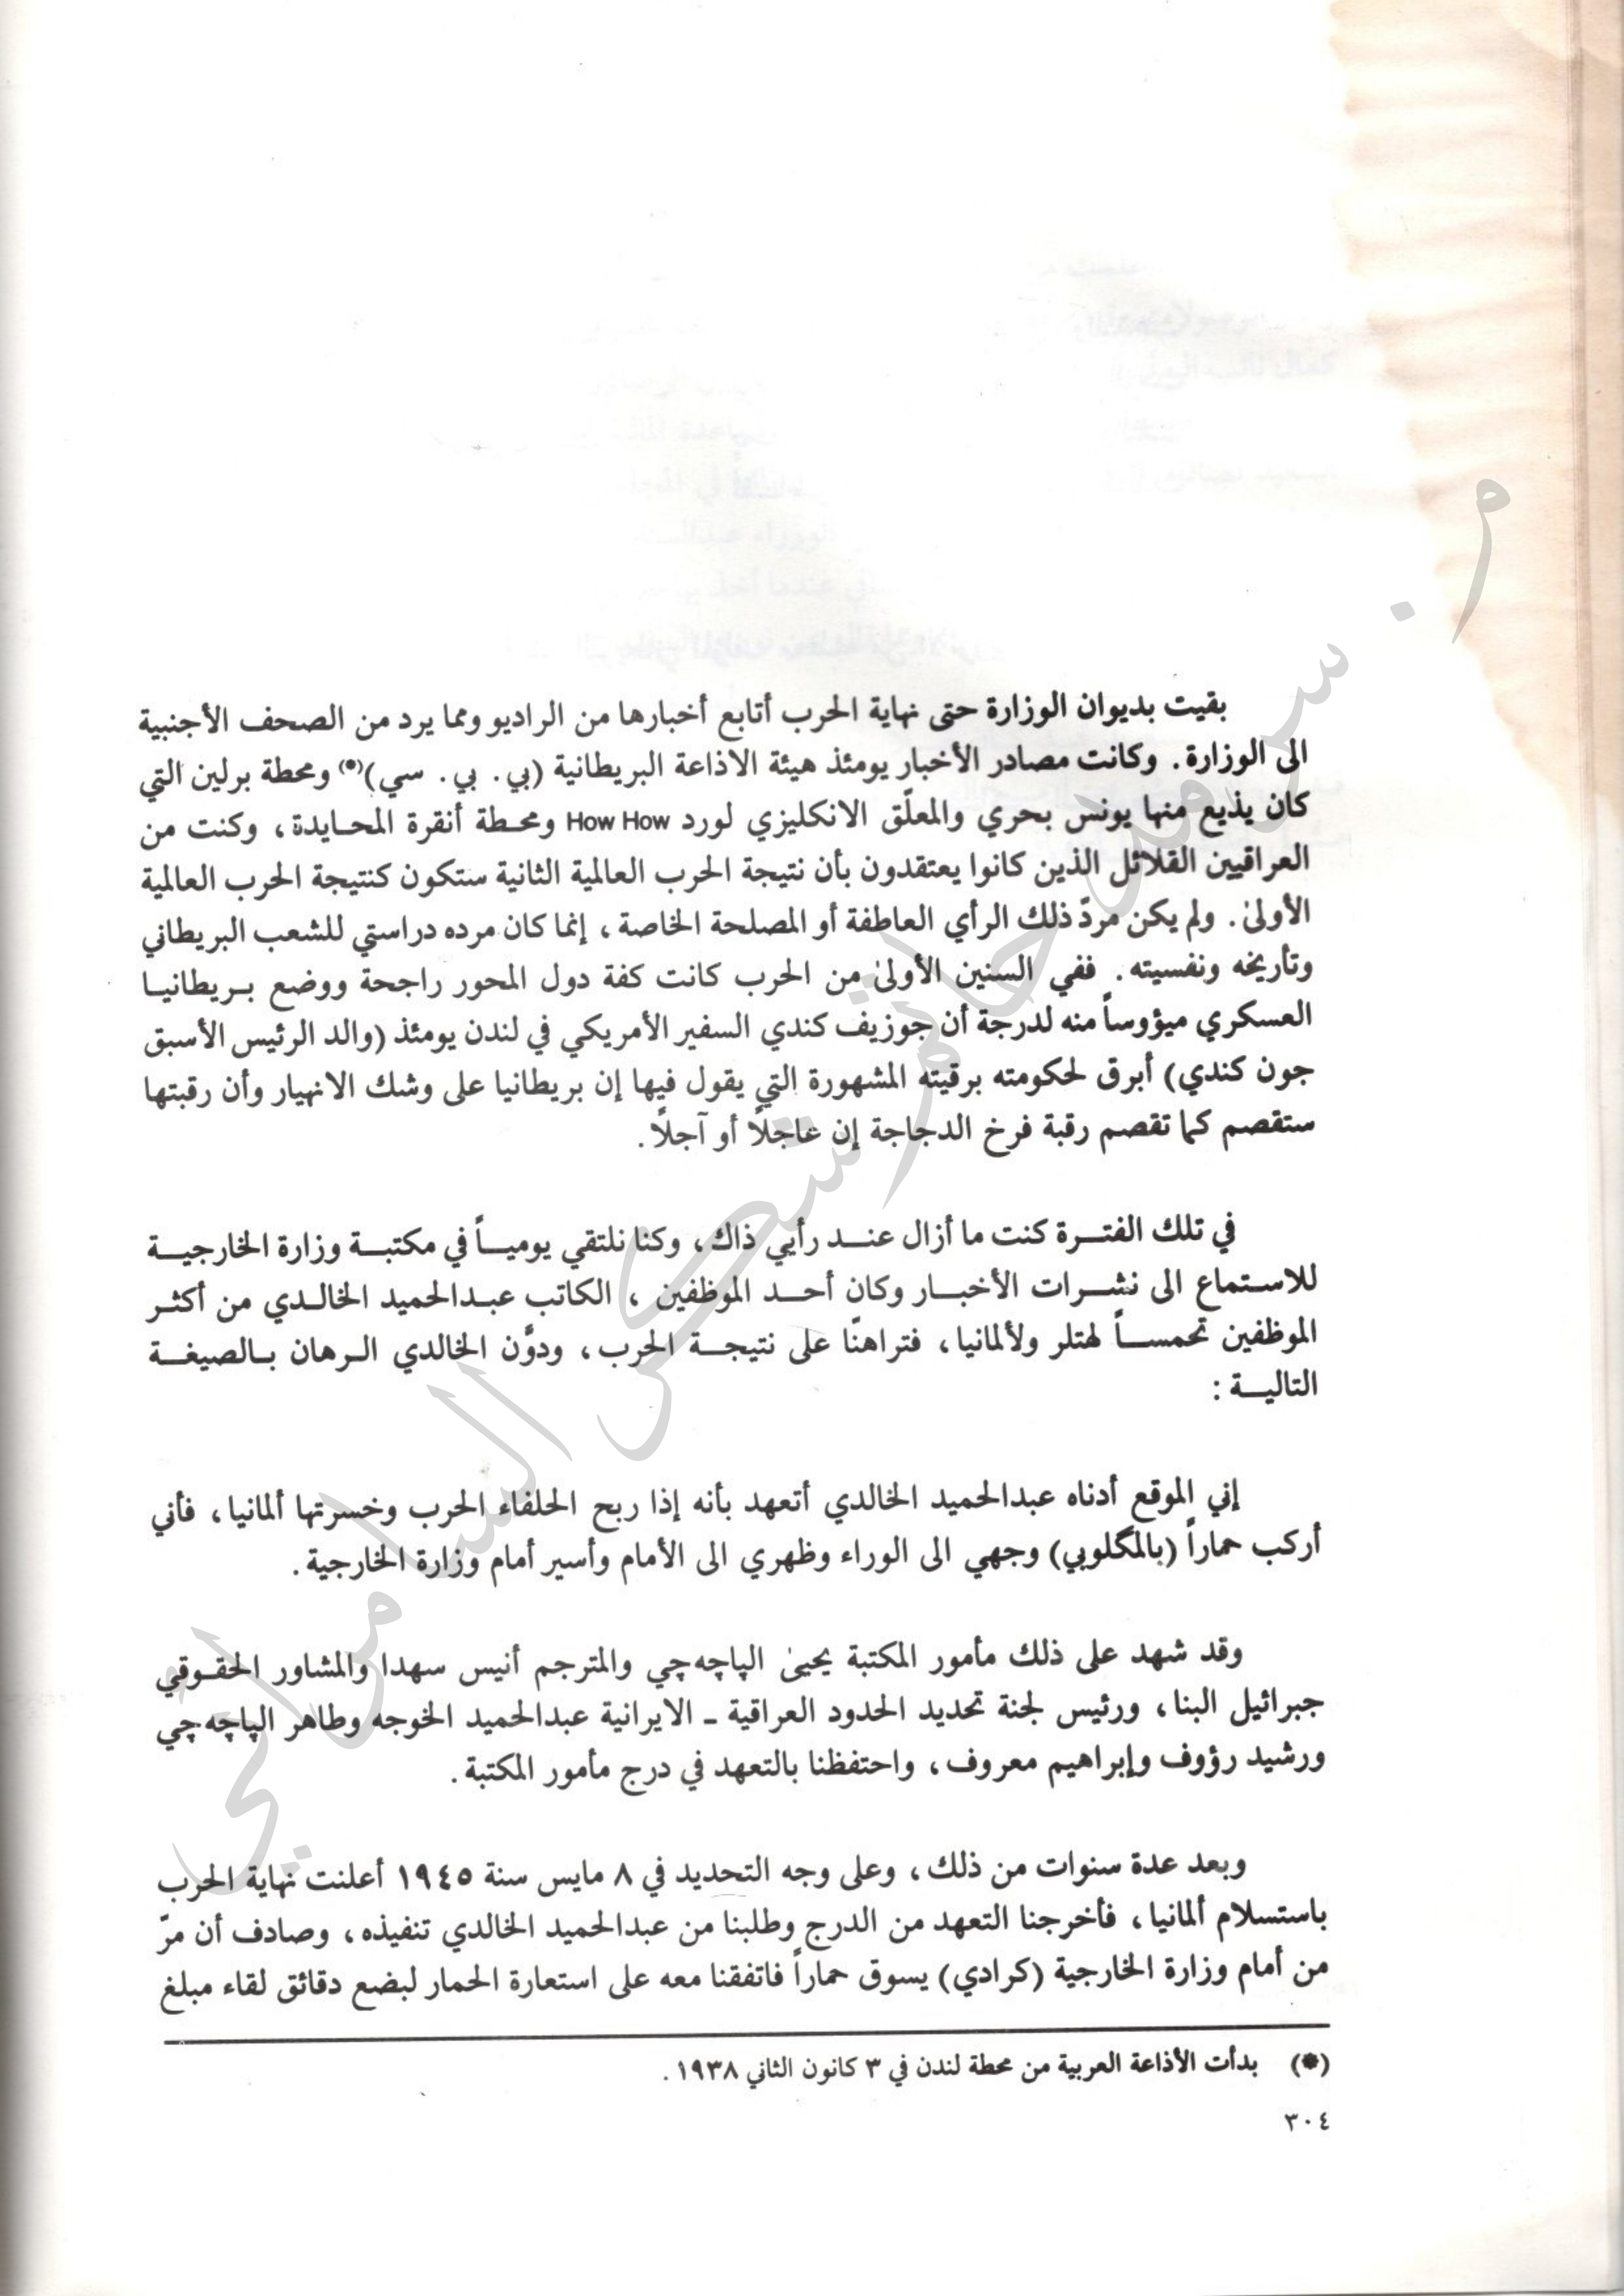 بقيت بديوان الوزارة حتى نهاية الحرب أتابع أخبارها من الراديو ومما يرد من الصحف الأجنبية
الى الوزارة. وكانت مصادر الأخبار يومئذ هيئة الاذاعة البريطانية (بي. بي. سي)(*) ومحطة برلين التي
كان يذيع منها يونس بحري والمعلّق الانكليزي لورد How How ومحطة أنقرة المحايدة، وكنت من
العراقيين القلائل الذين كانوا يعتقدون بأن نتيجة الحرب العالمية الثانية ستكون كنتيجة الحرب العالمية
الأولىٰ. ولم يكن مردّ ذلك الرأي العاطفة أو المصلحة الخاصة، إنما كان مرده دراستي للشعب البريطاني
وتأريخه ونفسيته. ففي السنين الأولىٰ من الحرب كانت كفة دول المحور راجحة ووضع بـريطانيـا
العسكري ميؤوساً منه لدرجة أن جوزيف كندي السفير الأمريكي في لندن يومئذ (والد الرئيس الأسبق
جون كندي) أبرق لحكومته برقيته المشهورة التي يقول فيها إن بريطانيا على وشك الانهيار وأن رقبتها
ستقصم كما تقصم رقبة فرخ الدجاجة إن عاجلاً أو آجلاً.
في تلك الفتـرة كنت ما أزال عنـد رأيي ذاك، وكنا نلتقي يوميـاً في مكتبـة وزارة الخارجيـة
للاستماع الى نشـرات الأخبـار وكان أحـد الموظفين، الكاتب عبـدالحميد الخالـدي من أكثـر
الموظفين تحمسـاً لهتلر ولألمانيا، فتراهنّا على نتيجـة الحرب، ودوَّن الخالدي الـرهان بـالصيغـة
التاليـة :
إني الموقع أدناه عبدالحميد الخالدي أتعهد بأنه إذا ربح الحلفاء الحرب وخسرتها ألمانيا، فأني
أركب حماراً (بالمگلوبي) وجهي الى الوراء وظهري الى الأمام وأسير أمام وزارة الخارجية.
وقد شهد على ذلك مأمور المكتبة يحيىٰ الپاچه چي والمترجم أنيس سهدا والمشاور الحقـوقي
جبرائيل البنا، ورئيس لجنة تحديد الحدود العراقية ـ الايرانية عبدالحميد الخوجه وطاهر الپاچه چي
ورشيد رؤوف وإبراهيم معروف، واحتفظنا بالتعهد في درج مأمور المكتبة.
وبعد عدة سنوات من ذلك، وعلى وجه التحديد في ٨ مايس سنة ١٩٤٥ أعلنت نهاية الحرب
باستسلام ألمانيا، فأخرجنا التعهد من الدرج وطلبنا من عبدالحميد الخالدي تنفيذه، وصادف أن مرّ
من أمام وزارة الخارجية (كرادي) يسوق حماراً فاتفقنا معه على استعارة الحمار لبضع دقائق لقاء مبلغ
(*) بدأت الأذاعة العربية من محطة لندن في ٣ كانون الثاني ١٩٣٨.
٣٠٤
من. سرمد حاتم شكر السامرائي